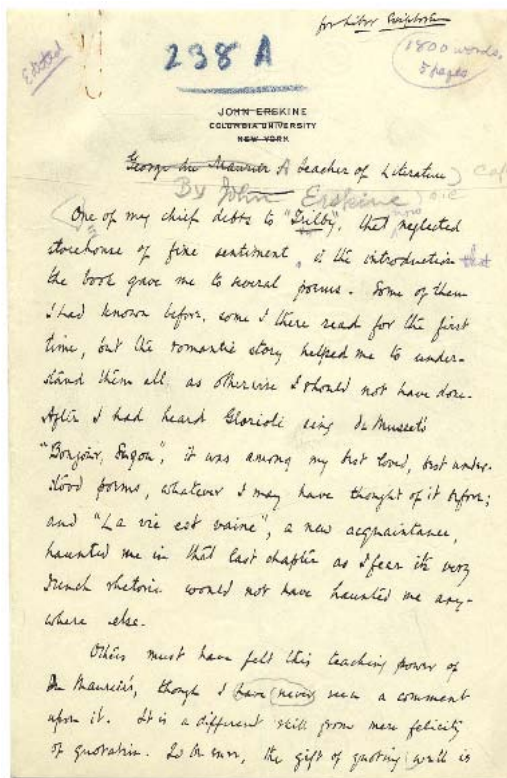 for Liber Scriptorum
Edited
238 A
1800 words,
5 pages
JOHN ERSKINE
COLUMBIA UNIVERSITY
NEW YORK
George du Maurier A Teacher of Literature
By John Erskine
One of my chief debts to "Trilby", that neglected
storehouse of fine sentiment, is the introduction that
the book gave me to several poems. Some of them
I had known before, some I there read for the first
time, but the romantic story helped me to under-
stand them all as otherwise I should not have done.
After I had heard Glorioli sing de Musset's
"Bonjour, Suzon", it was among my best loved, best under-
stood poems, whatever I may have thought of it before;
and "La vie est vaine", a new acquaintance,
haunted me in that last chapter as I fear its very
French rhetoric would not have haunted me any-
where else.
Others must have felt this teaching power of
Du Maurier's, though I have never seen a comment
upon it. It is a different skill from mere felicity
of quotation. To be sure, the gift of quoting well is